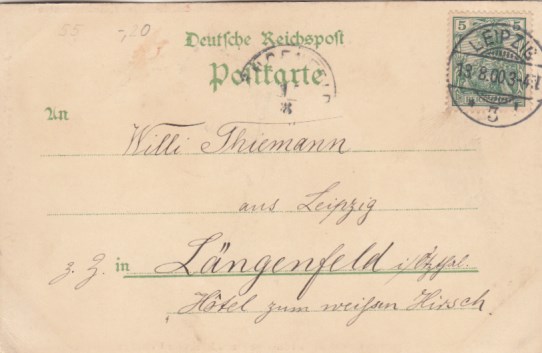 55 -,20
5 5
Deutsche Reichspost
Postkarte
LEIPZIG
13.8.00.3-4.
5
8
An
Willi Thiemann
aus Leipzig
z. Z. in Längenfeld i/Ötzthal.
Hôtel zum weißen Hirsch